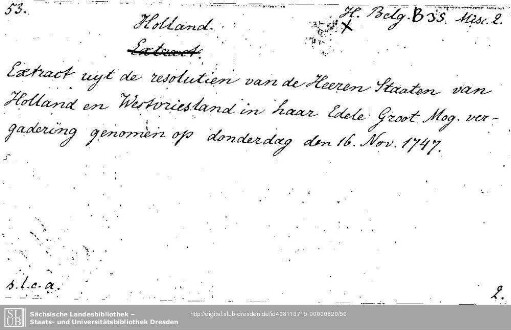 53.
Holland.
H. Belg. B 35, Misc. 2.
X
Extract
Extract uyt de resolutien van de Heeren Staaten van
Holland en Westvriesland in haar Edele Groot Mog. ver-
gadering genomen op donderdag den 16. Nov. 1747.
s. l. e. a.
2.
Sächsische Landesbibliothek –
Staats- und Universitätsbibliothek Dresden